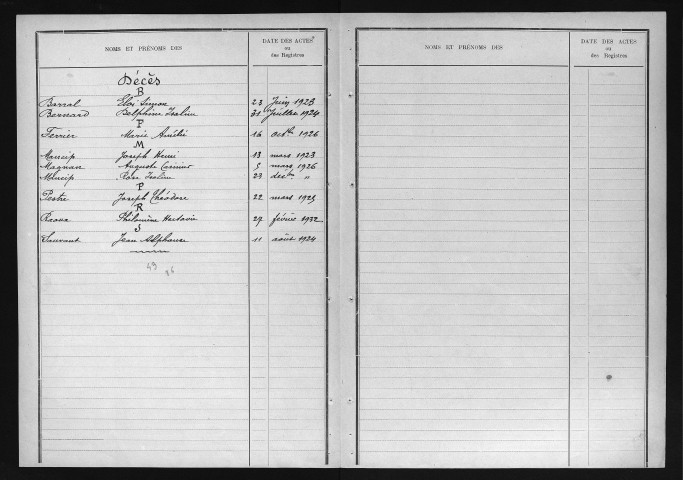 NOMS ET PRÉNOMS DES
DATE DES ACTES
ou
des Registres
Décès
B
Barral Eloi Simon 23 Juin 1923
Bernard Delphine 31 Juillet 1924
F
Ferrier Marie Amélie 16 octbre 1926
M
Mancip Joseph Henri 13 mars 1923
Magnan Auguste Casimir 5 mars 1926
Mancip Rose 23 decbre "
P
Pestre Joseph Théodore 22 mars 1925
R
Philomène 27 février 1932
S
Jean Alphonse 11 août 1924
49
86
NOMS ET PRÉNOMS DES
DATE DES ACTES
ou
des Registres